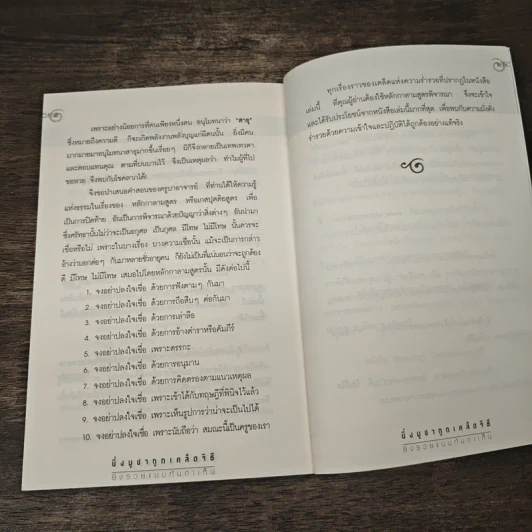 เพราะอย่างน้อยการที่คนเพียงหนึ่งคน อนุโมทนาว่า "สาธุ"
ซึ่งหมายถึงความดี ก็จะเกิดพลังงานพลังบุญแก่ผีตนนั้น ยิ่งมีคน
มากมายมาอนุโมทนาสาธุมากขึ้นเรื่อยๆ ผีก็จึงกลายเป็นเทพเทวดา
และตอบแทนคุณ ตามที่บนบานไว้ จึงเป็นเหตุผลว่า ทำไมผู้ที่ไป
ขอหวย จึงพบกับโชคลาภได้!
จึงขอนำเสนอคำสอนของครูบาอาจารย์ ที่ท่านได้ให้ความรู้
แห่งธรรมในเรื่องของ หลักกาลามสูตร หรือเกสปุตติยสูตร เพื่อ
เป็นการปิดท้าย อันเป็นการพิจารณาด้วยปัญญาว่าสิ่งต่างๆ อันนำมา
ซึ่งศรัทธานั้นไม่ว่าจะเป็นอกุศล เป็นกุศล มีโทษ ไม่มีโทษ นั้นควรจะ
เชื่อหรือไม่ เพราะในบางเรื่อง บางความเชื่อนั้น แม้จะเป็นการกล่าว
อ้างว่าบอกต่อๆ กันมาหลายชั่วอายุคน ก็ยังไม่เป็นที่แน่นอนว่าจะถูกต้อง
ดี มีโทษ ไม่มีโทษ เสมอไปโดยหลักกาลามสูตรนั้น มีดังต่อไปนี้
1. จงอย่าปลงใจเชื่อ ด้วยการฟังตามๆ กันมา
2. จงอย่าปลงใจเชื่อ ด้วยการถือสืบๆ ต่อกันมา
3. จงอย่าปลงใจเชื่อ ด้วยการเล่าลือ
4. จงอย่าปลงใจเชื่อ ด้วยการอ้างตำราหรือคัมภีร์
5. จงอย่าปลงใจเชื่อ เพราะตรรกะ
6. จงอย่าปลงใจเชื่อ ด้วยการอนุมาน
7. จงอย่าปลงใจเชื่อ ด้วยการคิดตรองตามแนวเหตุผล
8. จงอย่าปลงใจเชื่อ เพราะเข้าได้กับทฤษฎีที่พินิจไว้แล้ว
9. จงอย่าปลงใจเชื่อ เพราะเห็นรูปการว่าน่าจะเป็นไปได้
10. จงอย่าปลงใจเชื่อ เพราะนับถือว่า สมณะนี้เป็นครูของเรา
ยิ่งบูชาถูกเคล็ดวิธี
ยิ่งรวยแบบทันตาเห็น
ทุกเรื่องราวของเคล็ดแห่งความร่ำรวยที่ปรากฏในหนังสือ
เล่มนี้ ที่คุณผู้อ่านต้องใช้หลักกาลามสูตรพิจารณา จึงจะเข้าใจ
และได้รับประโยชน์จากหนังสือเล่มนี้มากที่สุด เพื่อพบกับความมั่งคั่ง
ร่ำรวยด้วยความเข้าใจและปฏิบัติได้ถูกต้องอย่างแท้จริง
ยิ่งบูชาถูกเคล็ดวิธี
ยิ่งรวยแบบทันตาเห็น